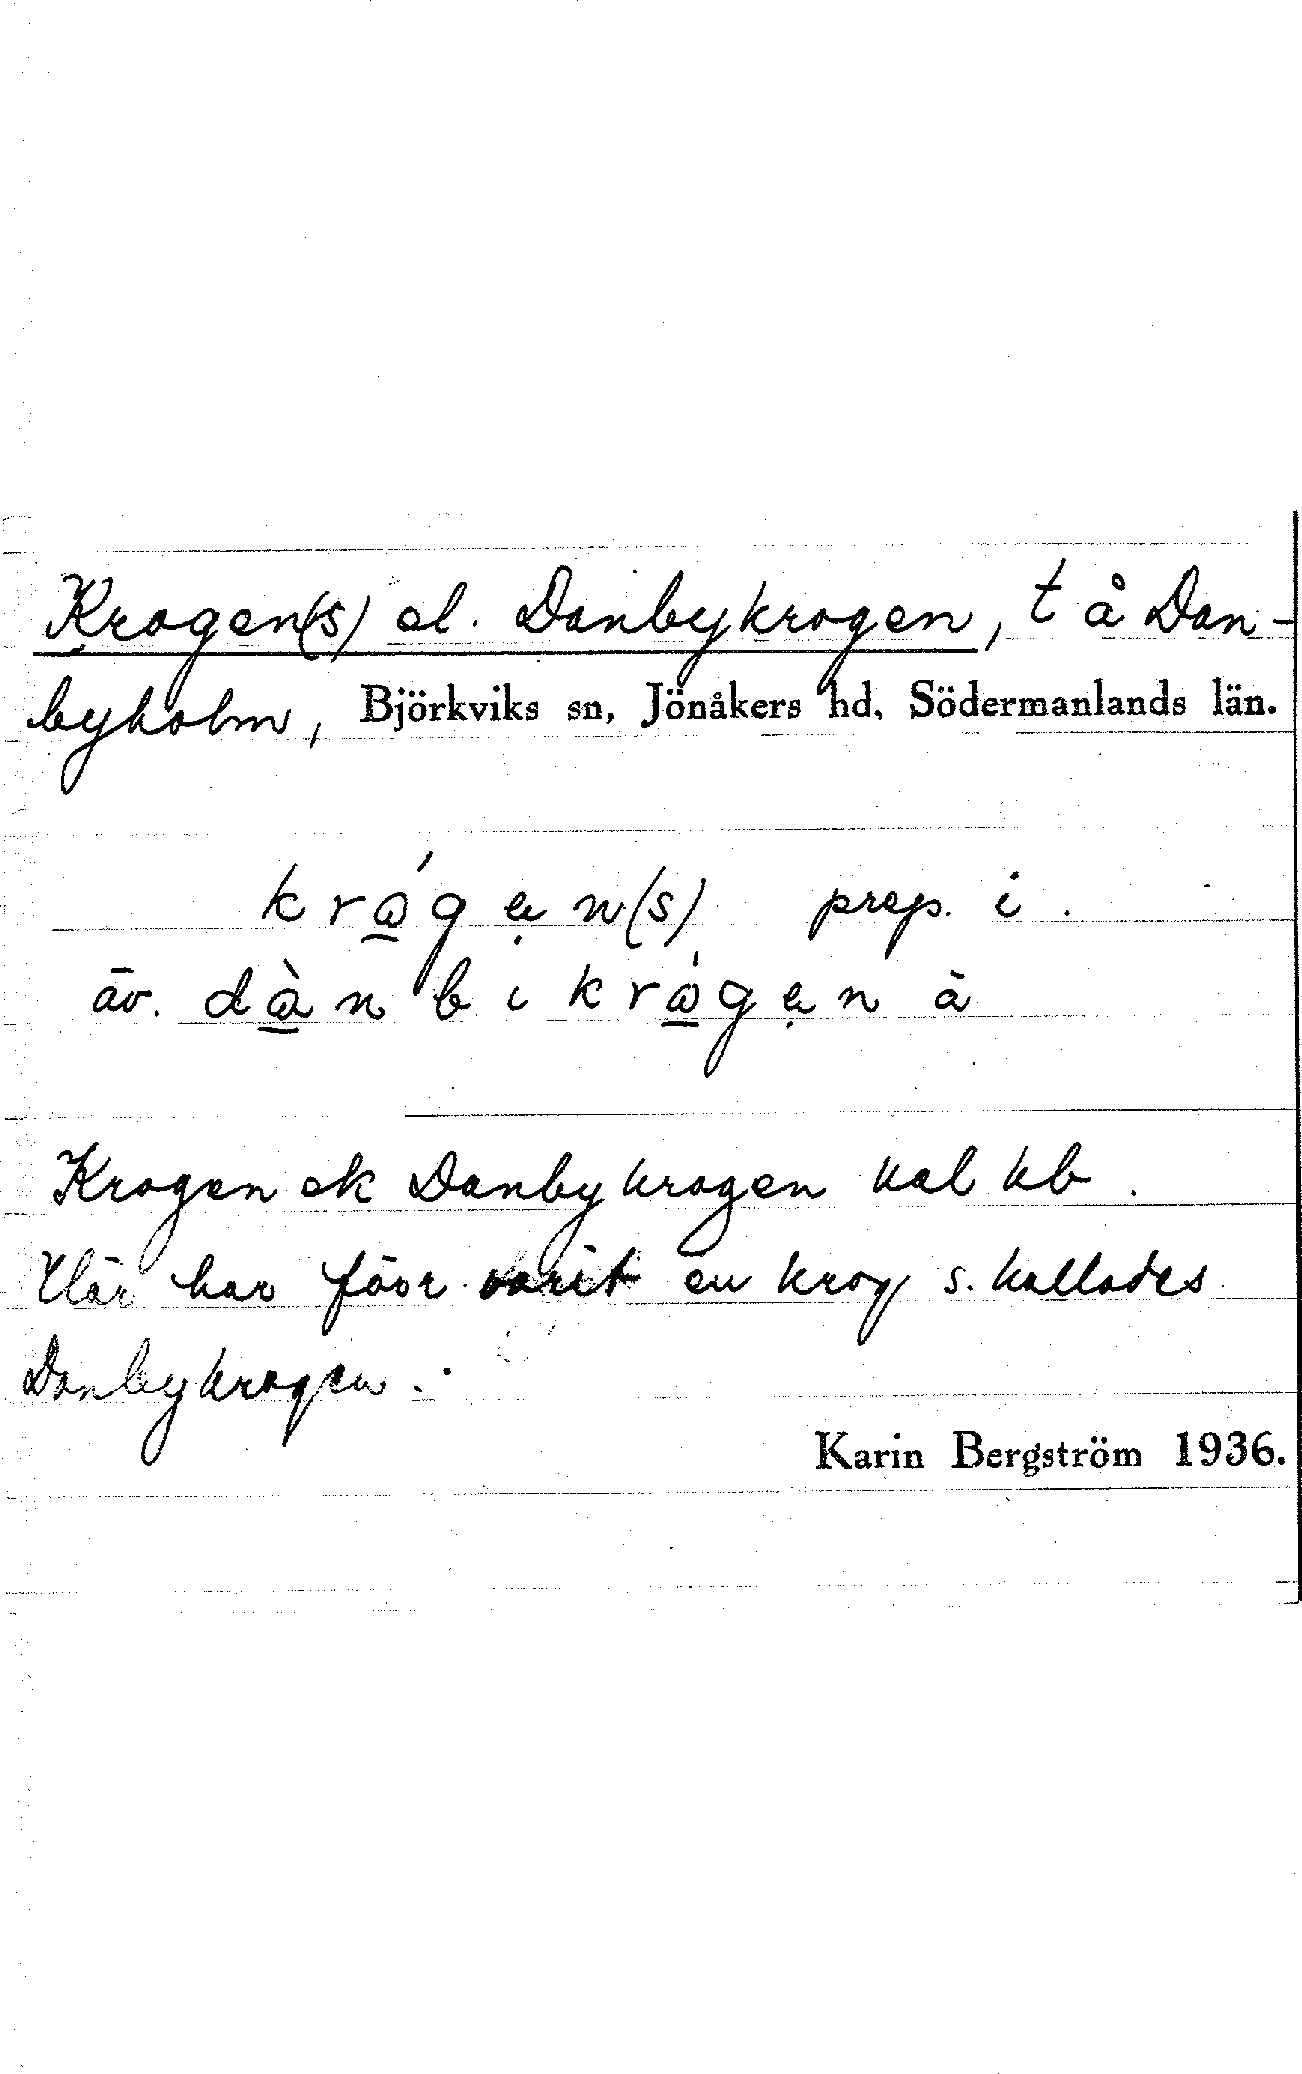 Krogen(s) el. Danbykrogen, t å Dan-
byholm, Björkviks sn, Jönåkers hd, Södermanlands län.
krǻgen(s) prep. i.
äv. dàn bikrǻgen å
Krogen ek Danbykrogen kal kb.
Här har förr varit en krog s. kallades
Danbykrogen.
Karin Bergström 1936.